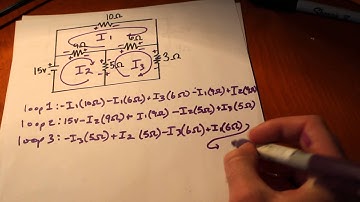 10Ω
I1
9Ω 6Ω
15v I2 5Ω I3 3Ω
loop 1: -I1(10Ω)-I1(6Ω)+I3(6Ω)-I1(9Ω)+I2(9Ω)
loop 2: 15v-I2(9Ω)+I1(9Ω)-I2(5Ω)+I3(5Ω)
loop 3: -I3(5Ω)+I2(5Ω)-I3(6Ω)+I1(6Ω)